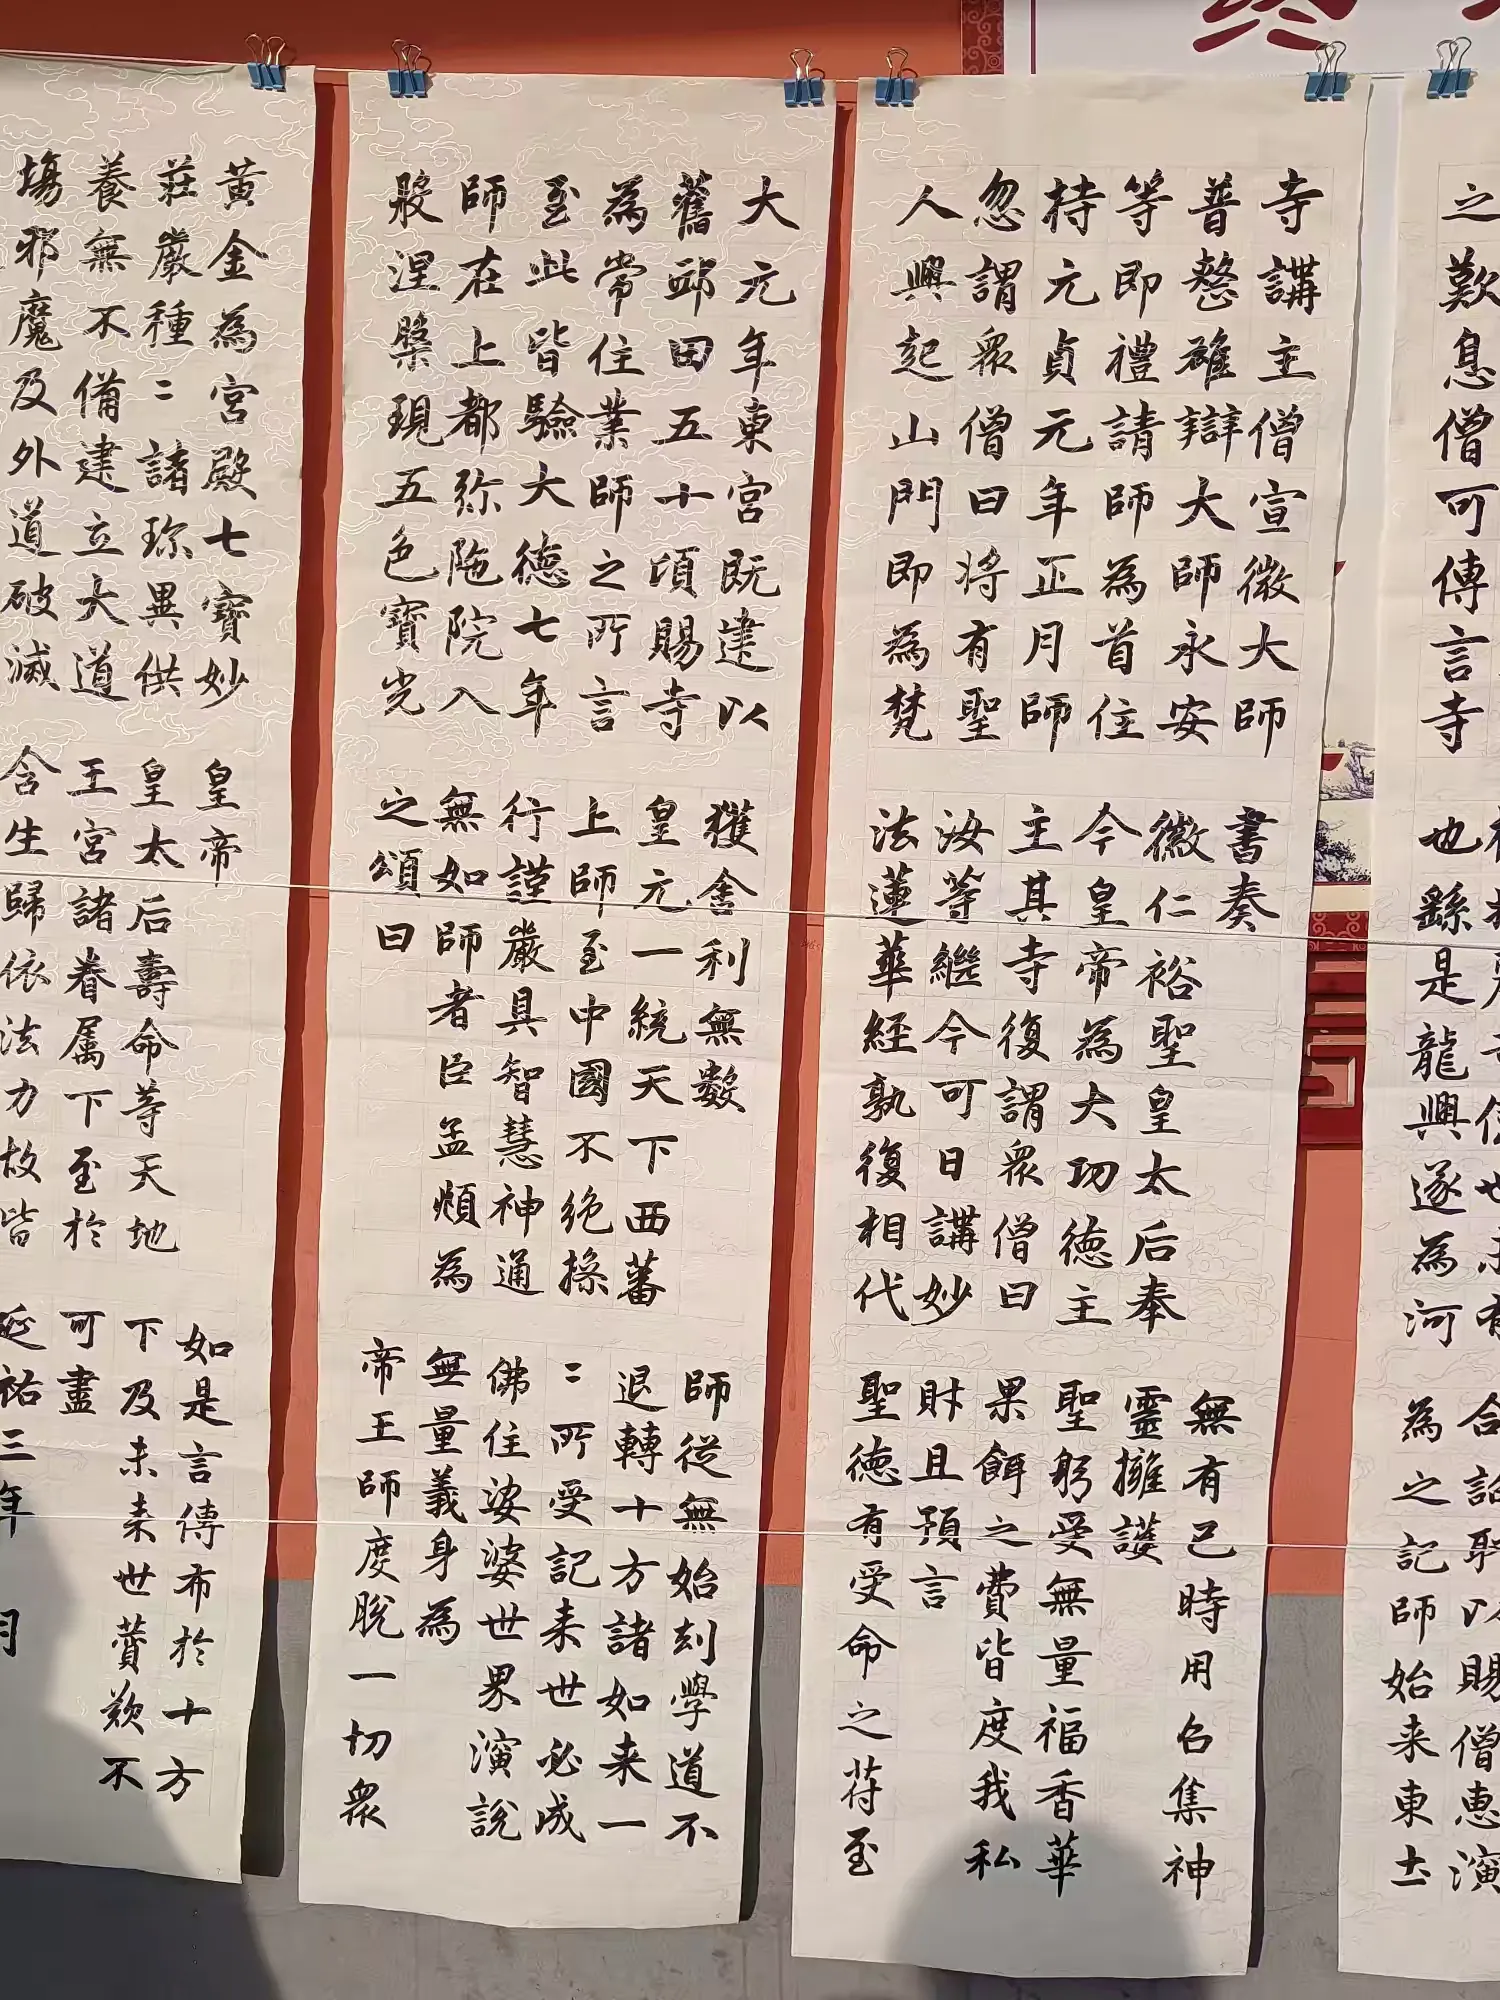 之歎息僧可傳言寺
也繇是龍興遂為河
賜僧惠演
為之記師始来東土
寺講主僧宣微大師
普整雄辯大師永安
等即禮請師為首住
持元貞元年正月師
忽謂眾僧曰将有聖
人興起山門即為梵
書奏
徽仁裕聖皇太后奉
今皇帝為大功徳主
主其寺復謂眾僧曰
汝等繼今可日講妙
法蓮華經孰復相代
無有已時用召集神
靈擁護
聖躬受無量福香華
果餌之費皆度我私
財且預言
聖徳有受命之苻至
大元年東宮既建以
舊邸田五十頃賜寺
為常住業師之所言
至此皆驗大徳七年
師在上都弥陁院入
般涅槃現五色寶光
獲舎利無數
皇元一統天下西蕃
上師至中國不絶操
行謹嚴具智慧神通
無如師者臣孟頫為
之頌曰
師從無始刼學道不
退轉十方諸如来一
〻所受記来世必成
佛住娑婆世界演說
無量義身為
帝王師度脫一切眾
黄金為宮殿七寶妙
莊嚴種〻諸珎異供
養無不備建立大道
塲邪魔及外道破滅
皇帝
皇太后壽命等天地
王宮諸眷属下至於
含生歸依法力故皆
如是言傳布於十方
下及未来世賛歎不
可盡
延祐三年 月